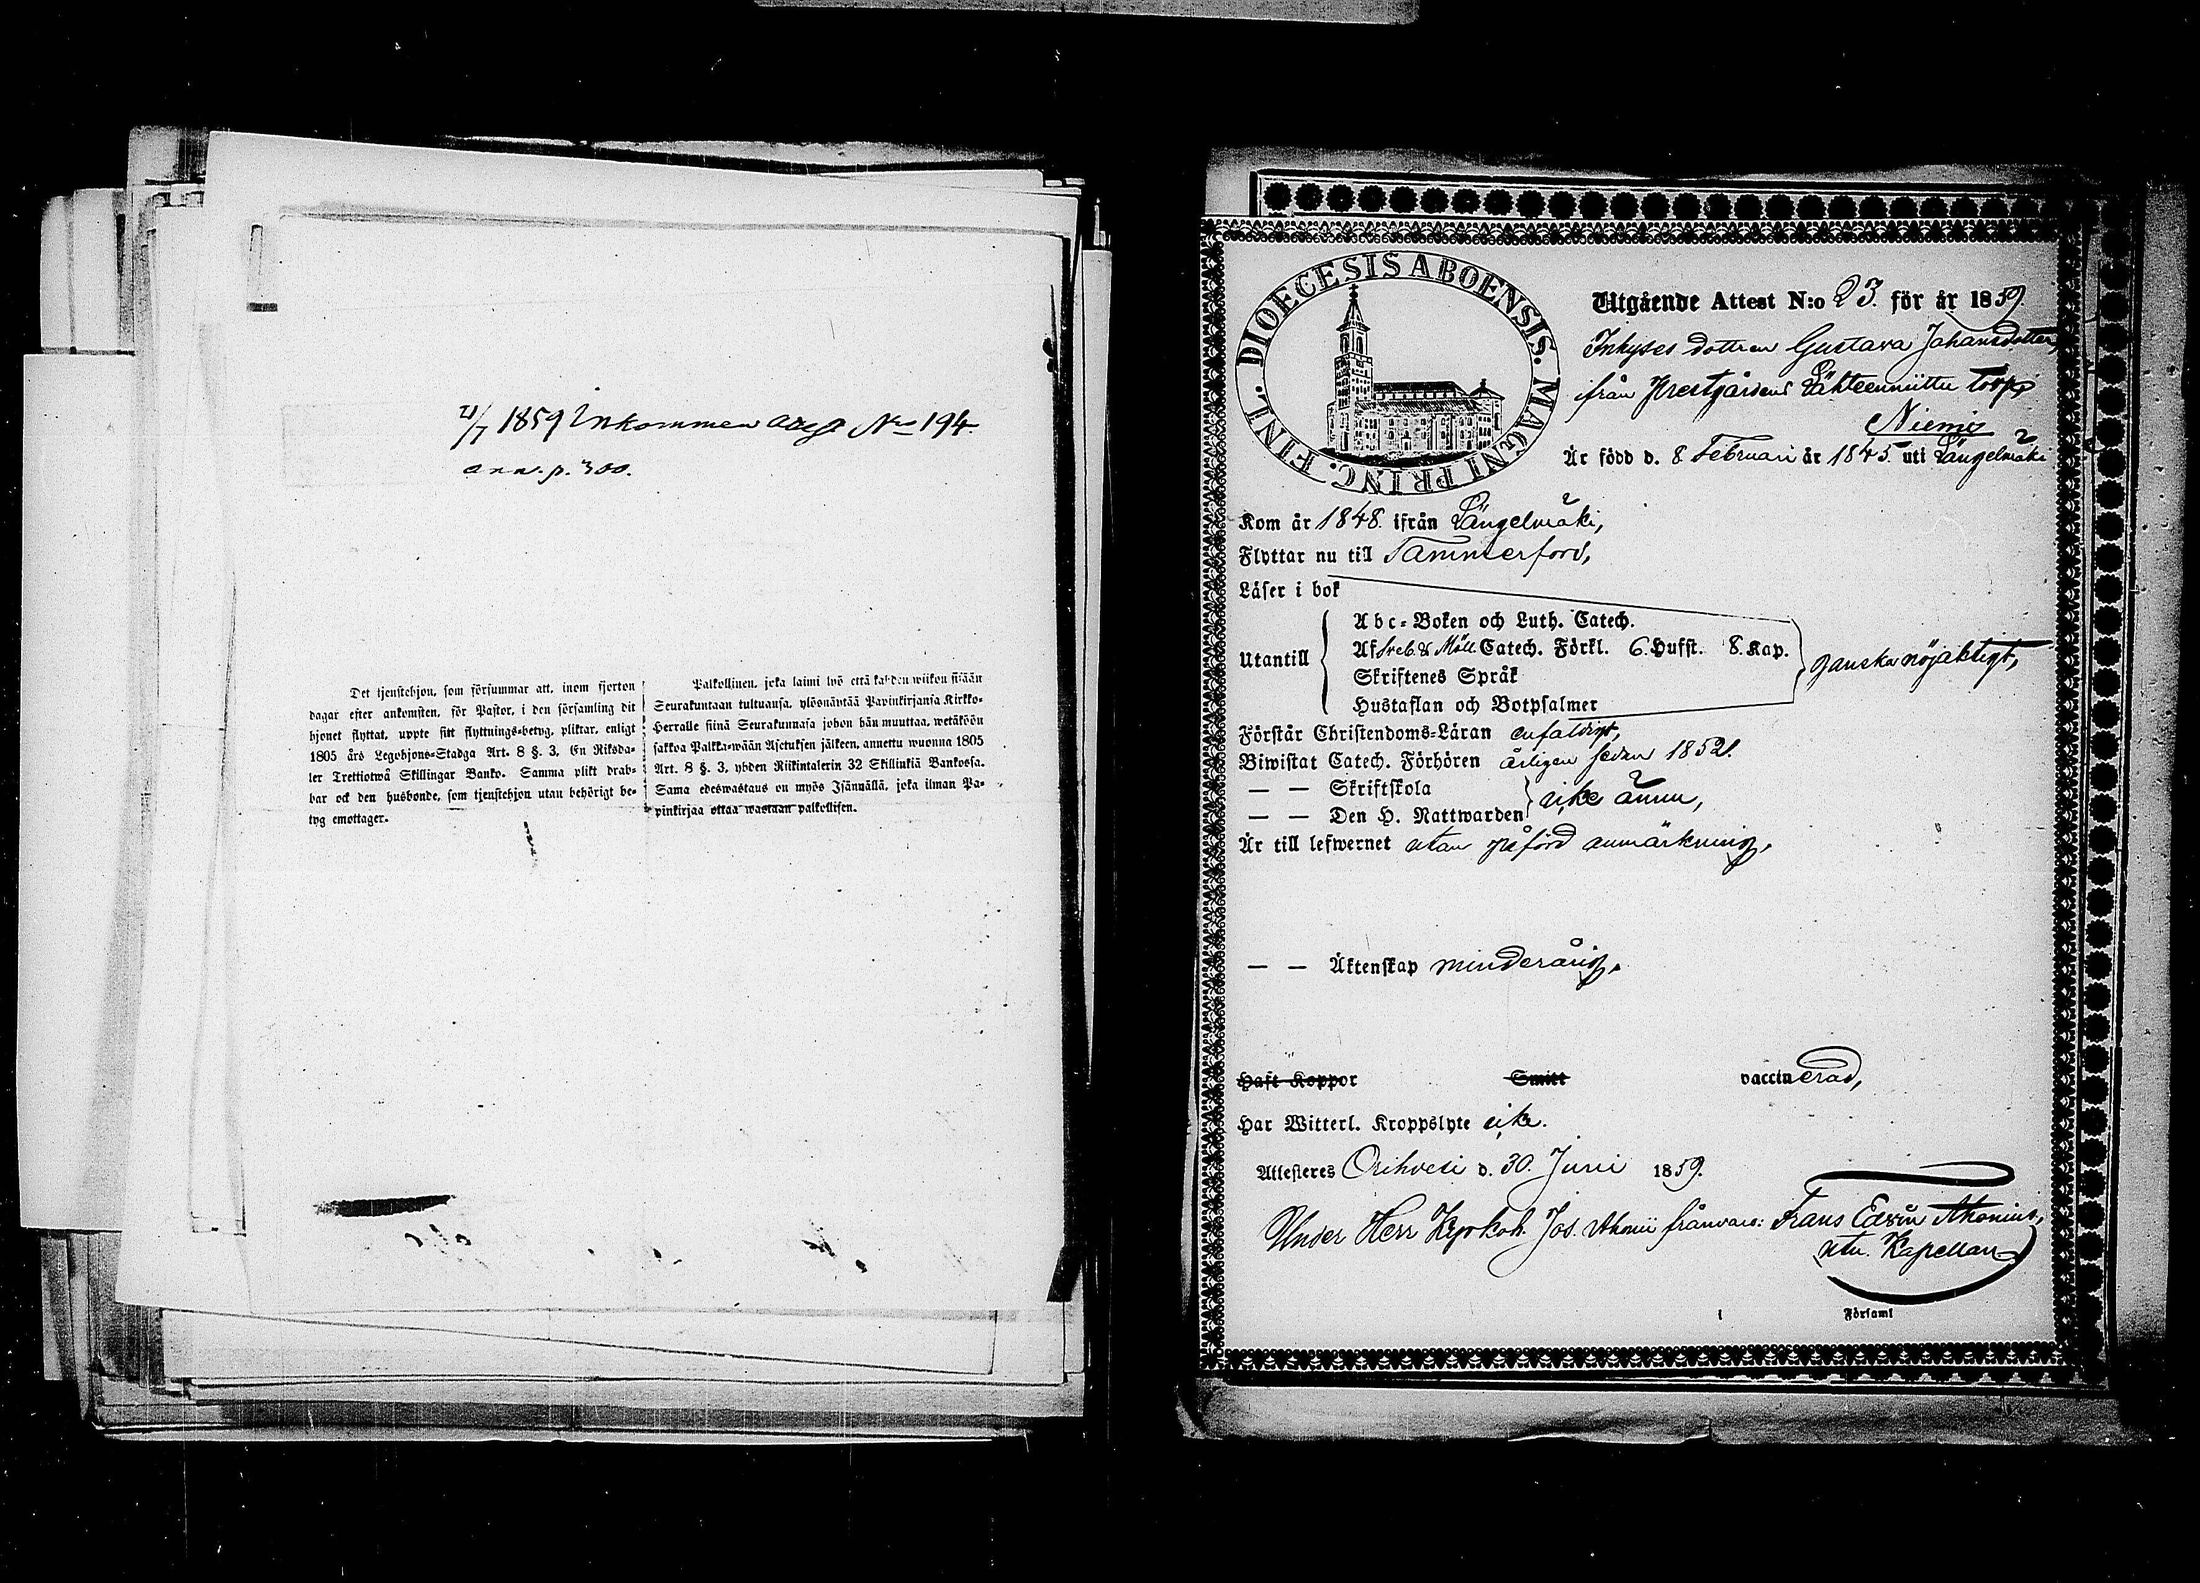 21/7 1859 Inkommen attest No 194.
ann. p. 300.
Det tjenstehjon, som försummar att, inom fjorton
dagar efter ankomsten, för Pastor, i den församling dit
hjonet flyttat, uppte sitt flyttnings-betyg, pliktar, enligt
1805 års Legohjons-Stadga Art. 8 §. 3, En Riksda-
ler Trettiotwå Skillingar Banko. Samma plikt drab-
bar ock den husbonde, som tjenstehjon utan behörigt be-
tyg emottager.
Palkollinen, joka laimi lyö että kahden wiikon sisään
Seurakuntaan tultuansa, ylösnäyttää Papinkirjansa Kirkko-
Herralle siinä Seurakunnasa johon hän muuttaa, wetäköön
sakkoa Palkka-wään Asetuksen jälkeen, annettu wuonna 1805
Art. 8 §. 3, yhden Riikintalerin 32 Skillinkiä Bankossa.
Sama edeswastaus on myös Isännällä, joka ilman Pa-
pinkirjaa ottaa wastaan palkollisen.
DIOECESIS ABOENSIS. MAGNI PRINC. FINL.
Utgående Attest N:o 23. för år 1859.
Inhyses dottren Gustava Johansdotter,
ifrån Prestgårdens Lähteenniittu torp,
Niemis
Är född d. 8 Februari år 1845. uti Längelmäki
Kom år 1848. ifrån Längelmäki,
Flyttar nu till Tammerfors,
Läser i bok
Utantill
Abc-Boken och Luth. Catech.
Af Sveb. & Möll. Catech. Förkl. 6. Hufst. 8. Kap.
Skriftenes Språk
Hustaflan och Botpsalmer
ganska nöjaktigt,
Förstår Christendoms-Läran enfaldigt,
Biwistat Catech. Förhören årligen sedan 1852.
— — Skriftskola
— — Den H. Nattwarden
icke ännu,
Är till lefwernet utan påförd anmärkning,
— — Äktenskap minderårig.
Haft Koppor Smitt vaccinerad,
Har Witterl. Kroppslyte icke.
Attesteres Orihvesi d. 30. Juni 1859.
Under Herr Kyrkoh. Jos. Ahonii frånvaro: Frans Edvin Ahonius,
utn. Kapellan
Församl